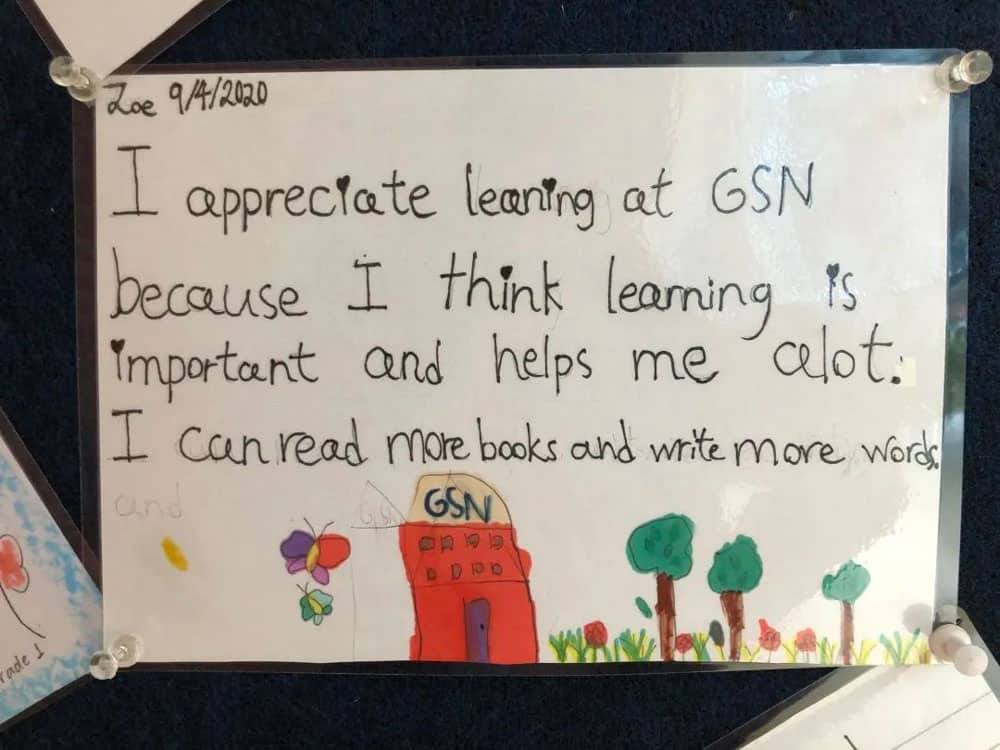 Zoe 9/4/2020
I appreciate leaning at GSN
because I think learning is
important and helps me alot.
I can read more books and write more words.
and
GSN
GSN
rade 1